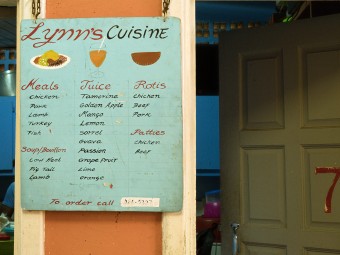 Lynn's Cuisine
Meals
Chicken
Pork
Lamb
Turkey
Fish
Soup/Bouillon
Cow Heel
Pig Tail
Lamb
Juice
Tamerine
Golden Apple
Mango
Lemon
Sorrel
Guava
Passion
Grape Fruit
Lime
Orange
Rotis
Chicken
Beef
Pork
Patties
Chicken
Beef
To order call
7